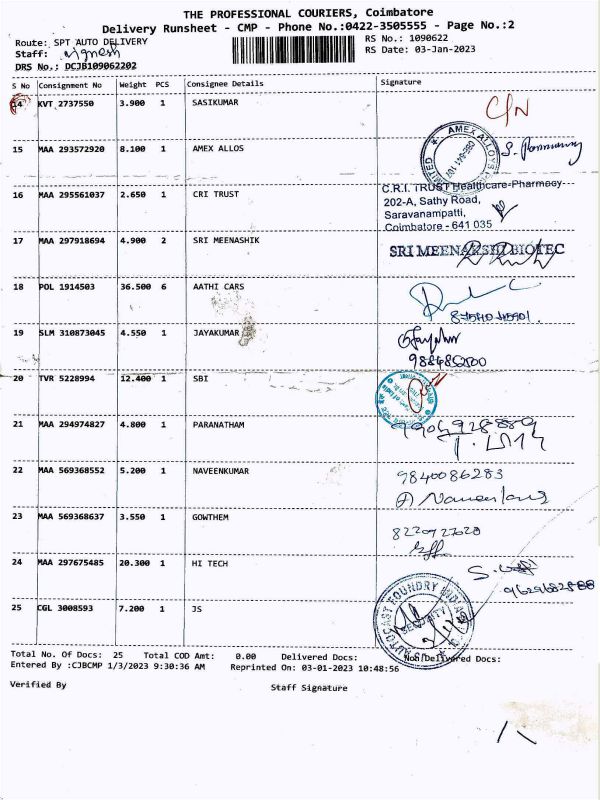 THE PROFESSIONAL COURIERS, Coimbatore
Delivery Runsheet - CMP - Phone No.:0422-3505555 - Page No.:2
Route: SPT AUTO DELIVERY RS No.: 1090622
Staff: vignesh RS Date: 03-Jan-2023
DRS No.: DCJB109062202
S No Consignment No Weight PCS Consignee Details Signature
14 KVT 2737550 3.900 1 SASIKUMAR C/N
15 MAA 293572920 8.100 1 AMEX ALLOS AMEX ALLOYS
16 MAA 295561037 2.650 1 CRI TRUST
C.R.I. TRUST Healthcare-Pharmacy
202-A, Sathy Road,
Saravanampatti,
Coimbatore - 641 035
17 MAA 297918694 4.900 2 SRI MEENASHIK SRI MEENAKSHI BIOTEC
18 POL 1914503 36.500 6 AATHI CARS
19 SLM 310873045 4.550 1 JAYAKUMAR
9884852500
20 TVR 5228994 12.400 1 SBI
21 MAA 294974827 4.800 1 PARANATHAM
22 MAA 569368552 5.200 1 NAVEENKUMAR 9840086283
23 MAA 569368637 3.550 1 GOWTHEM
24 MAA 297675485 20.300 1 HI TECH
25 CGL 3008593 7.200 1 JS AUTOCAST FOUNDRY INDIA
SECURITY
Total No. Of Docs: 25 Total COD Amt: 0.00 Delivered Docs: Non Delivered Docs:
Entered By :CJBCMP 1/3/2023 9:30:36 AM Reprinted On: 03-01-2023 10:48:56
Verified By Staff Signature